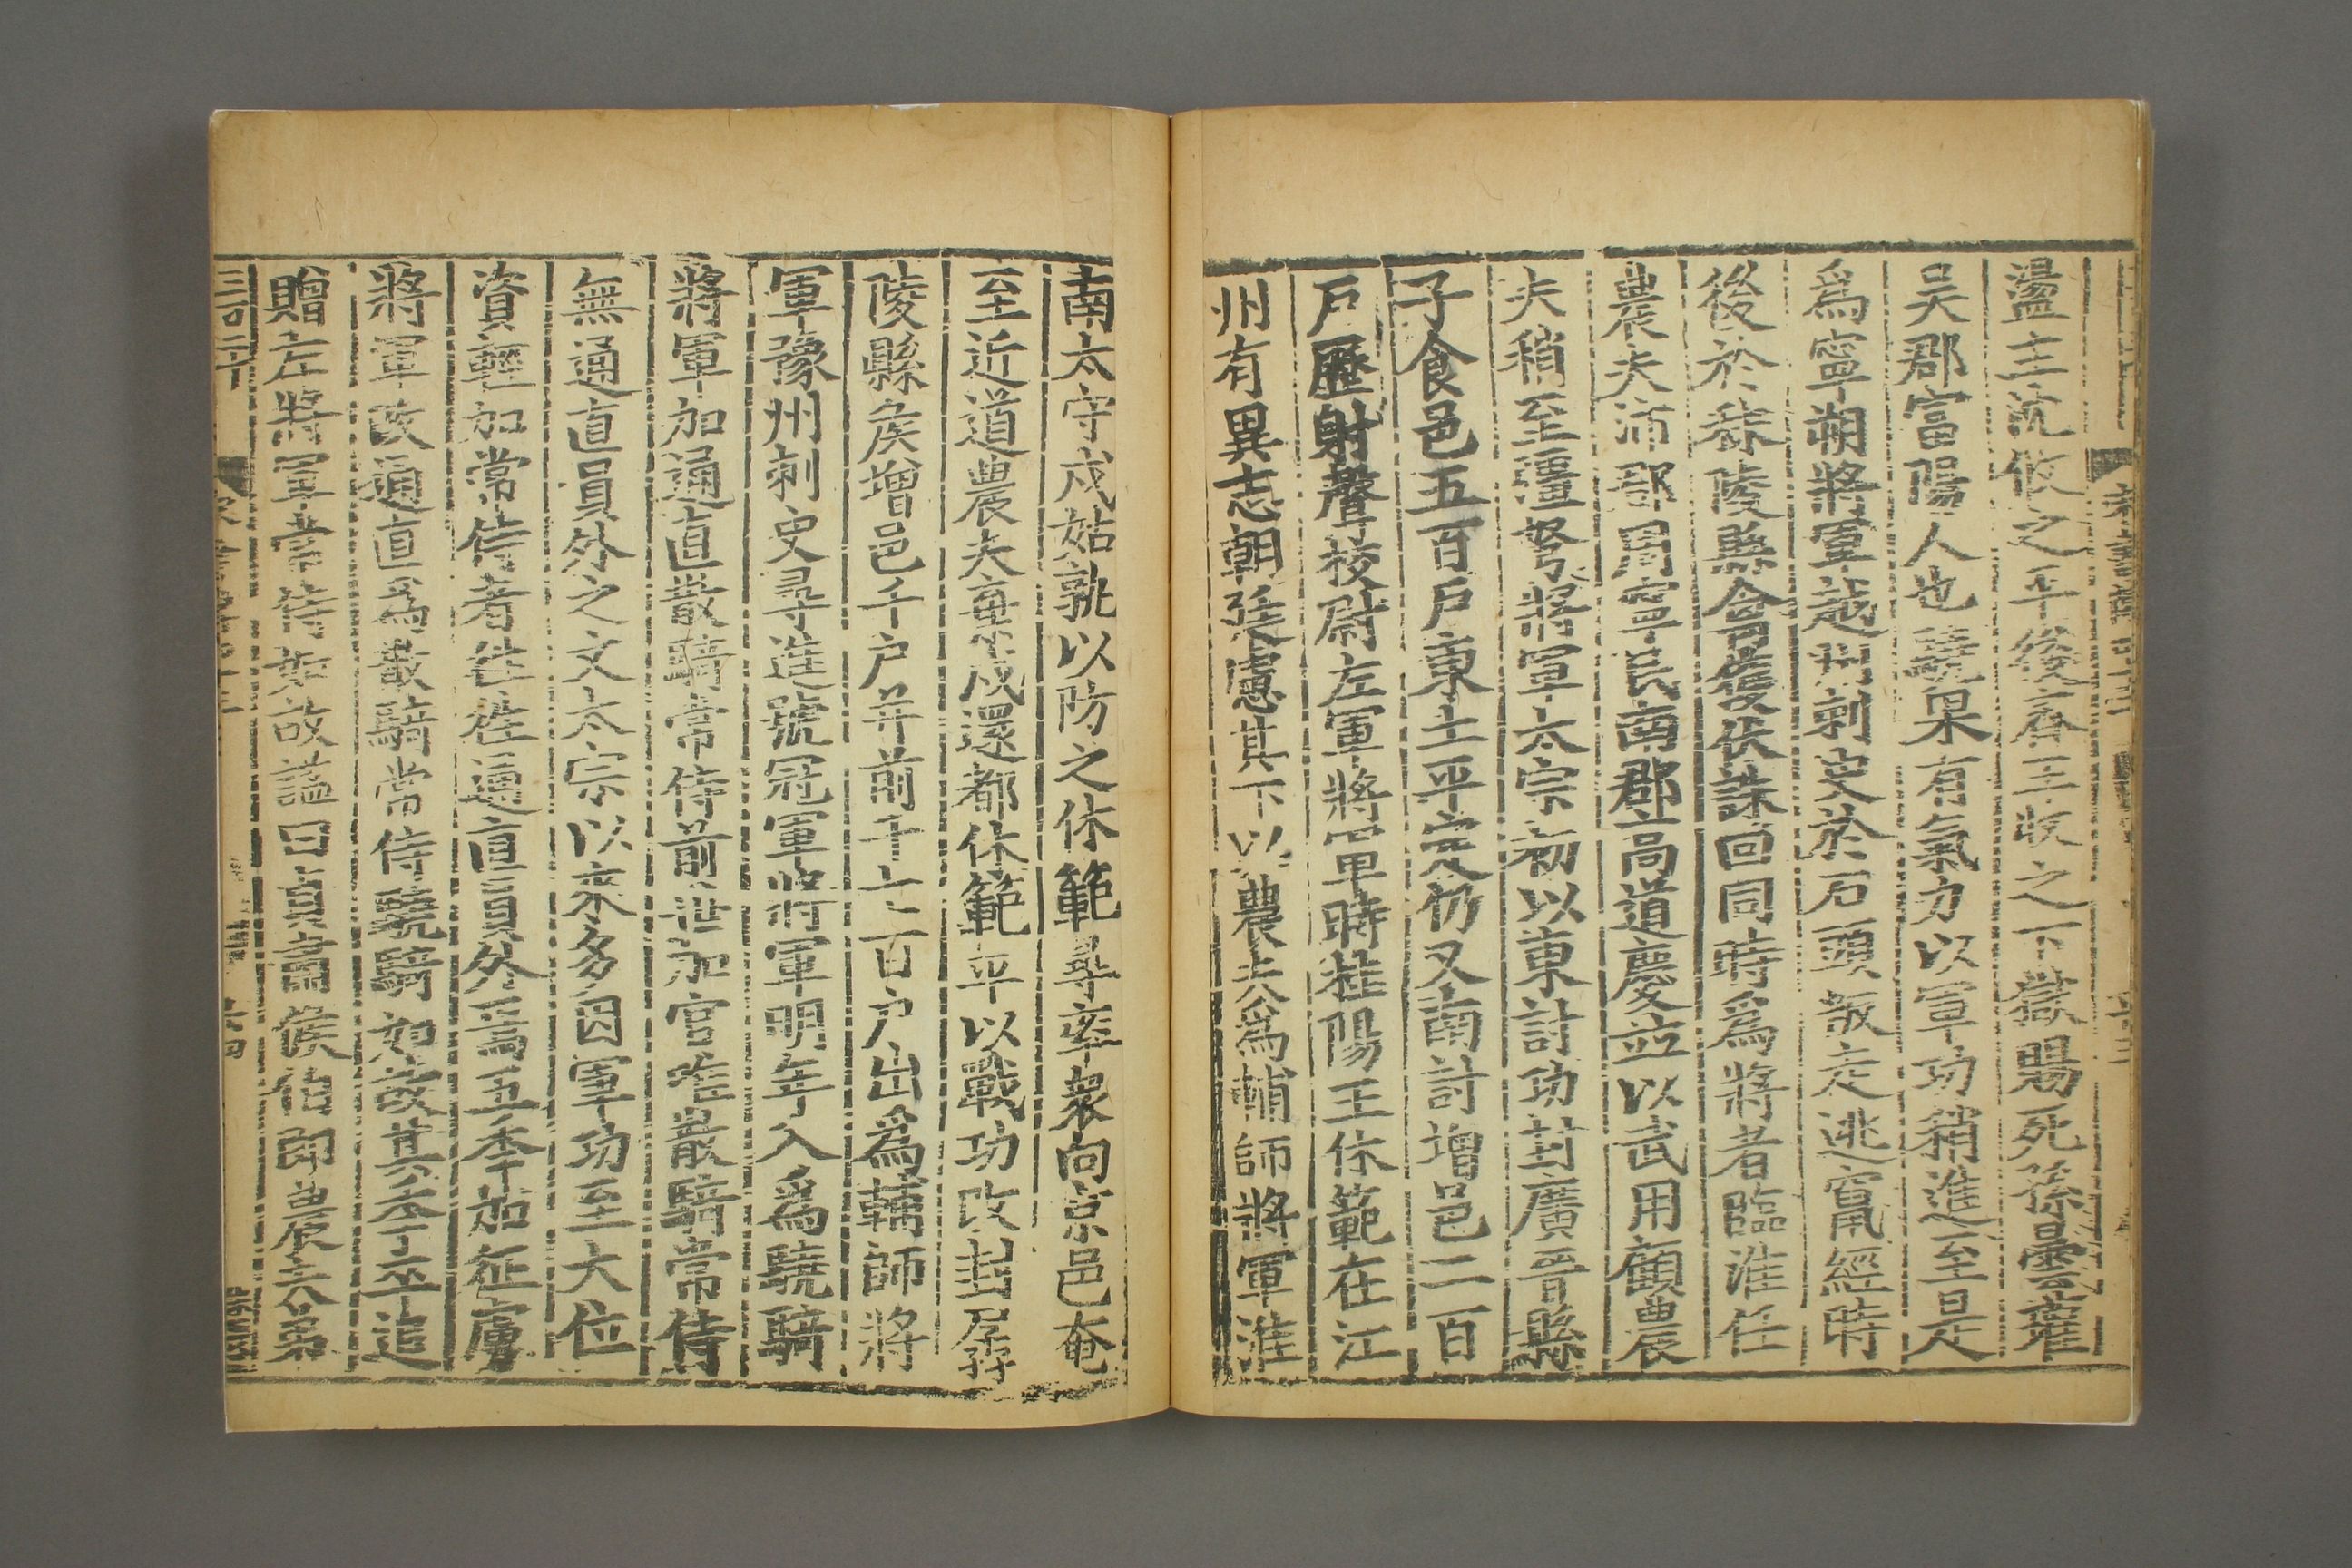 盪主沈攸之平後齊王收之下獄賜死孫曇瓘
吳郡富陽人也驍果有氣力以軍功稍進至是
爲寧朔將軍越州刺史於石頭叛走逃竄經時
後於秣陵縣禽獲伏誅回同時爲將者臨淮任
農夫沛郡周寧民南郡高道慶並以武用顧農
夫稍至彊弩將軍太宗初以東討功封廣晉縣
子食邑五百戶東土平定仍又南討增邑二百
戶歷射聲校尉左軍將軍時桂陽王休範在江
州有異志朝廷慮其下以農夫爲輔師將軍淮
南太守戍姑孰以防之休範尋率衆向京邑奄
至近道農夫棄戍還都休範平以戰功改封孱
陵縣侯增邑千戶并前千七百戶出爲輔師將
軍豫州刺史尋進號冠軍將軍明年入爲驍騎
將軍加通直散騎常侍前世加官唯散騎常侍
無通直員外之文太宗以來多因軍功至大位
資輕加常侍者往往通直員外焉五年加征虜
將軍改通直爲散騎常侍驍騎如故其年卒追
贈左將軍常侍如故謚曰貞肅侯伯即農夫弟